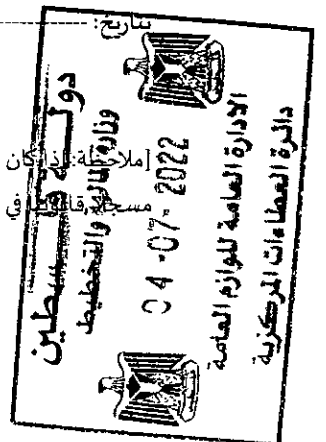 بتاريخ:
[ملاحظة: إذا كان
مسجلا
في
دولة فلسطين
وزارة المالية والتخطيط
04-07-2022
الادارة العامة للوازم العامة
دائرة العطاءات المركزية